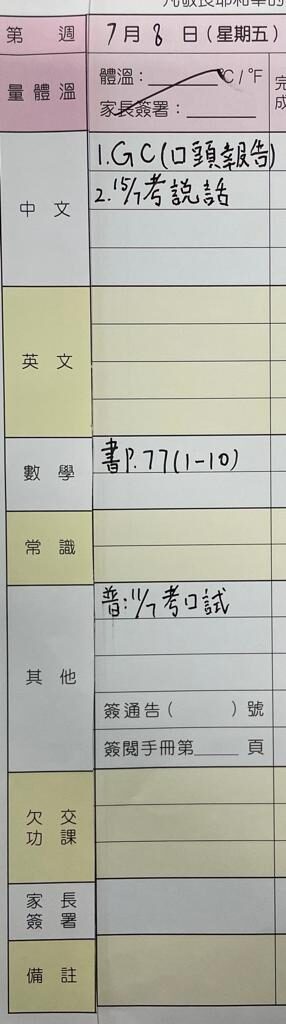 第　週 7月8日(星期五)
量體溫 體溫:______°C/°F
家長簽署:______
完成
中文 1.GC(口頭報告)
2.15/7考説話
英文
數學 書P.77(1-10)
常識
其他 普:11/7考口試
簽通告(　　)號
簽閱手冊第____頁
欠交功課
家長簽署
備註